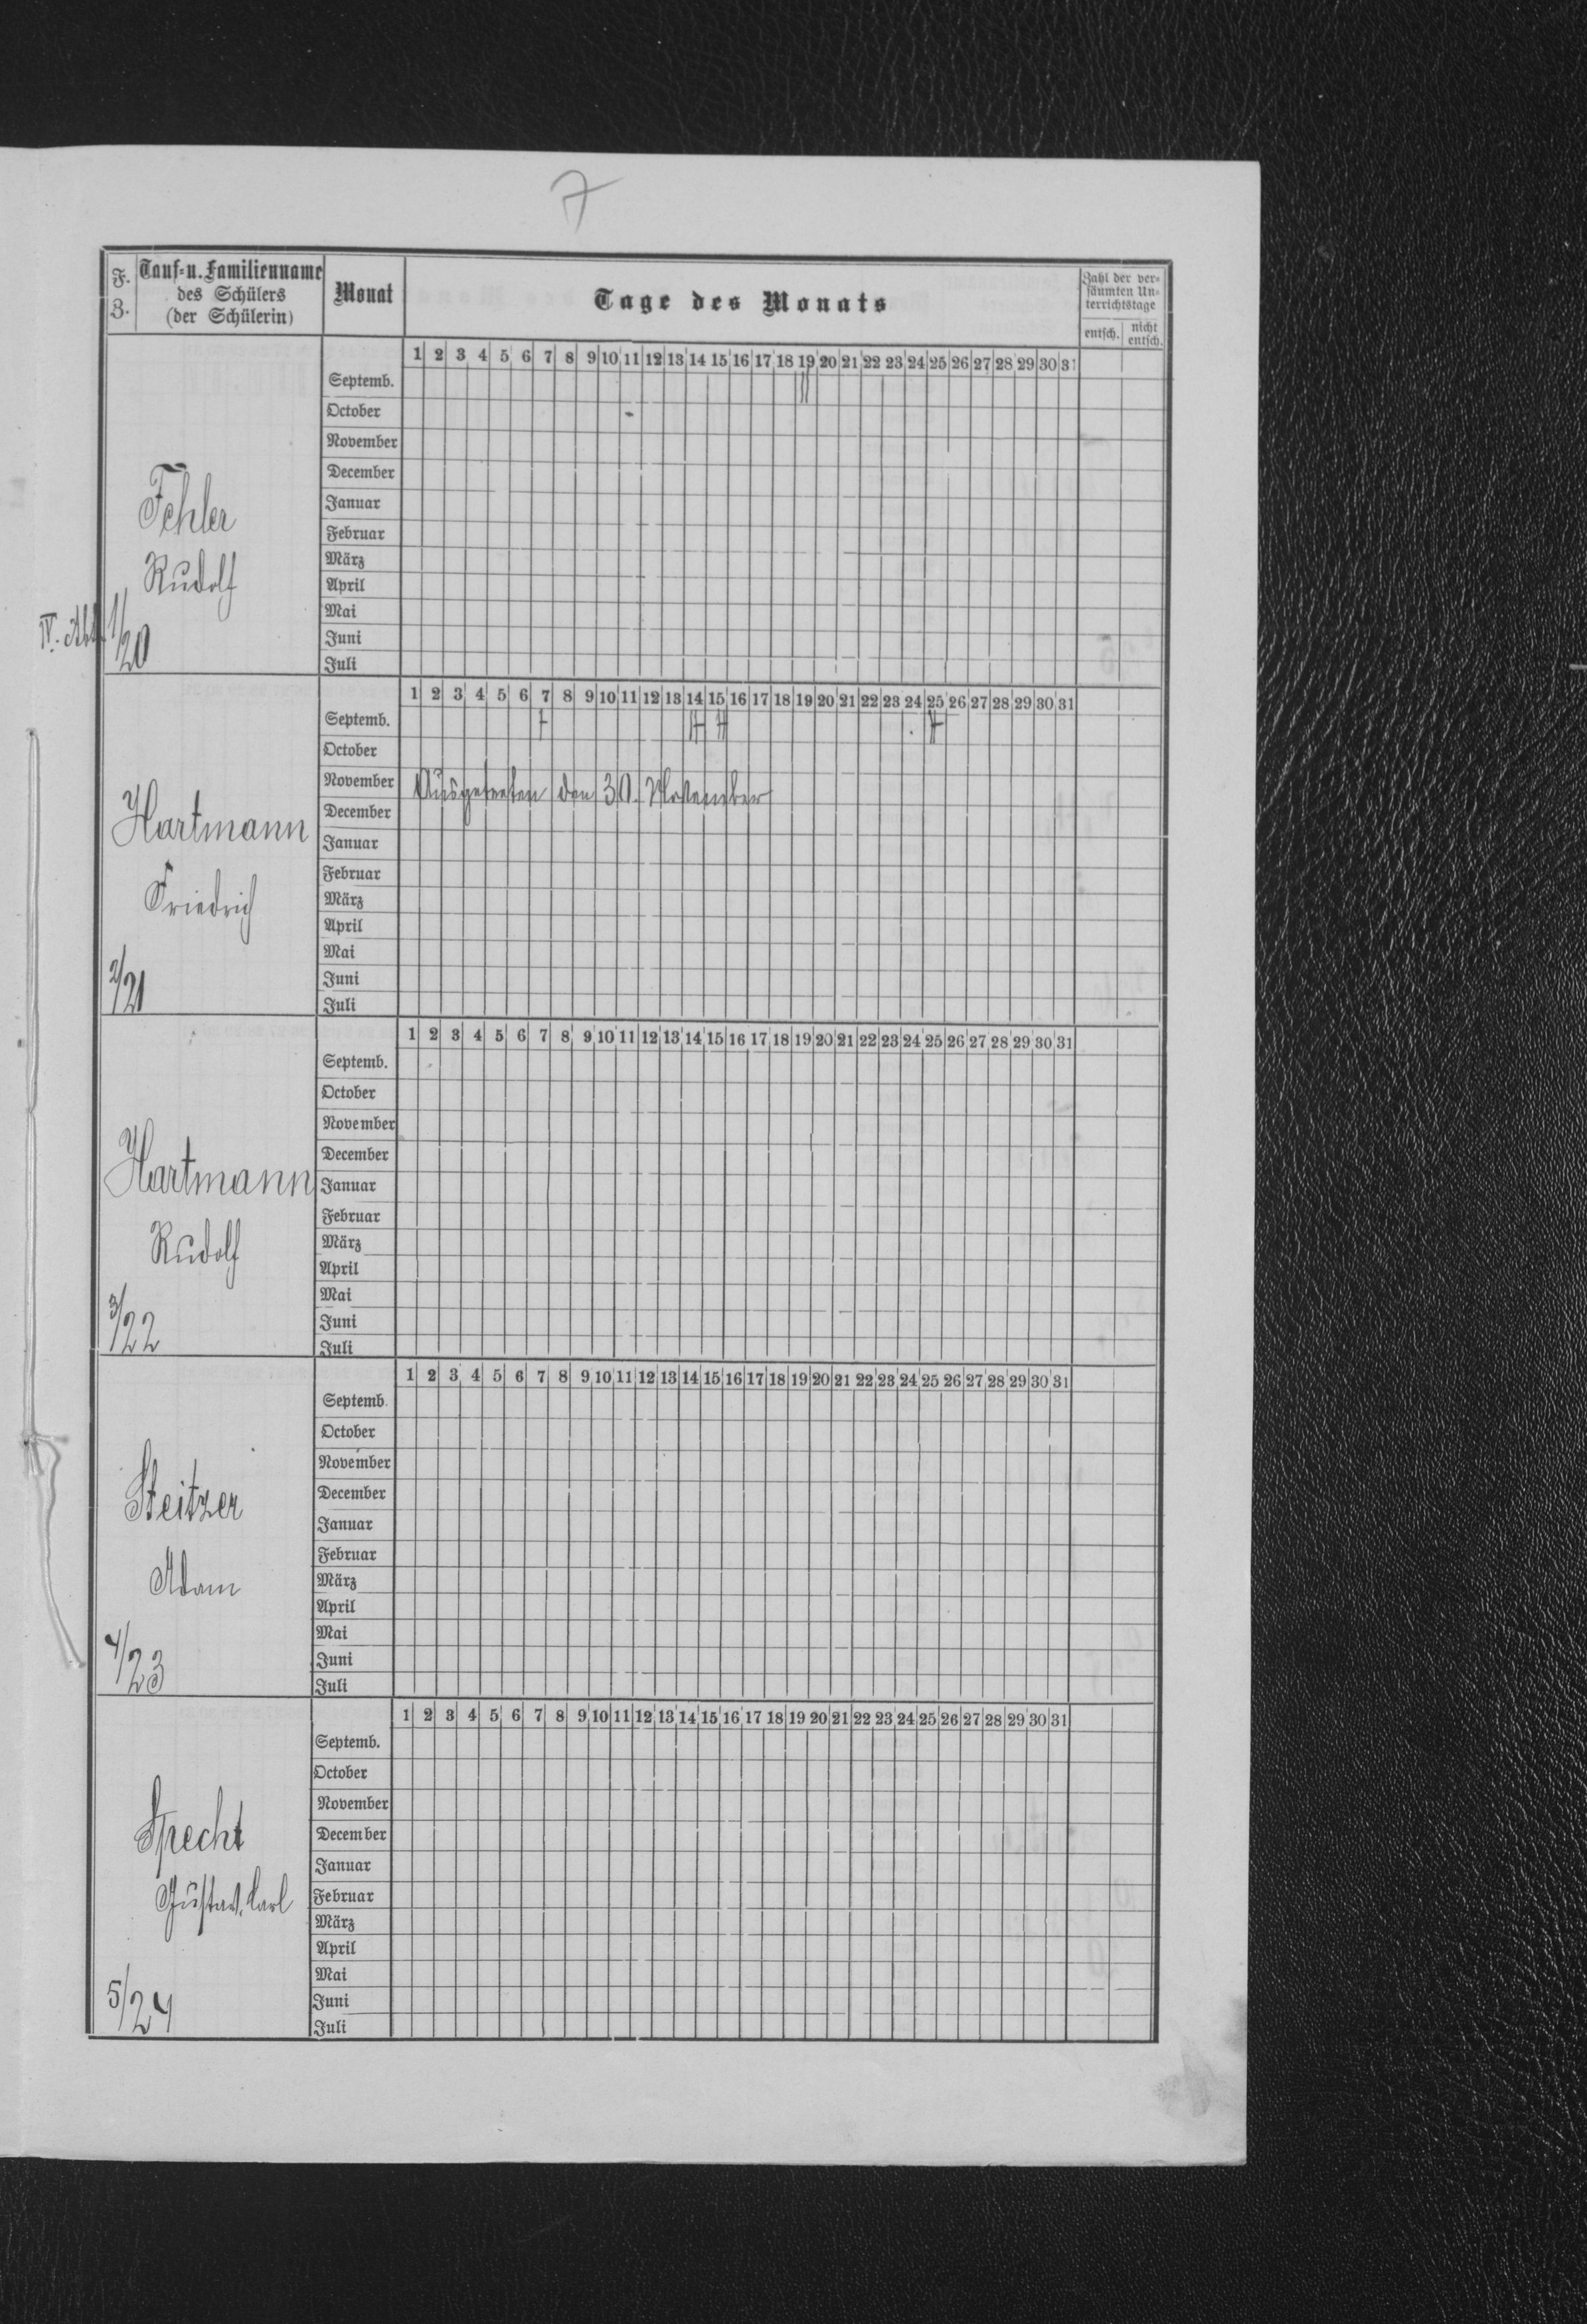 7
F. Z.
Tauf= u. Familienname
des Schülers
(der Schülerin)
Monat
Tage des Monats
Zahl der ver=
säumten Un=
terrichtstage
entsch. nicht entsch.
1 2 3 4 5 6 7 8 9 10 11 12 13 14 15 16 17 18 19 20 21 22 23 24 25 26 27 28 29 30 31
Septemb.
October
November
December
Fehler
Januar
Februar
Rudolf
März
April
Mai
IV. Abt. 1/20
Juni
Juli
1 2 3 4 5 6 7 8 9 10 11 12 13 14 15 16 17 18 19 20 21 22 23 24 25 26 27 28 29 30 31
Septemb.
October
November
Ausgetreten den 30. November
December
Hartmann
Januar
Februar
Friedrich
März
April
Mai
2/21
Juni
Juli
1 2 3 4 5 6 7 8 9 10 11 12 13 14 15 16 17 18 19 20 21 22 23 24 25 26 27 28 29 30 31
Septemb.
October
November
December
Hartmann
Januar
Februar
Rudolf
März
April
Mai
3/22
Juni
Juli
1 2 3 4 5 6 7 8 9 10 11 12 13 14 15 16 17 18 19 20 21 22 23 24 25 26 27 28 29 30 31
Septemb.
October
November
December
Steitzer
Januar
Februar
Adam
März
April
Mai
4/23
Juni
Juli
1 2 3 4 5 6 7 8 9 10 11 12 13 14 15 16 17 18 19 20 21 22 23 24 25 26 27 28 29 30 31
Septemb.
October
November
December
Specht
Januar
Februar
Gustav Carl
März
April
Mai
5/24
Juni
Juli